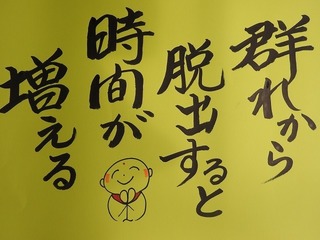 群れから
脱出すると
時間が
増える